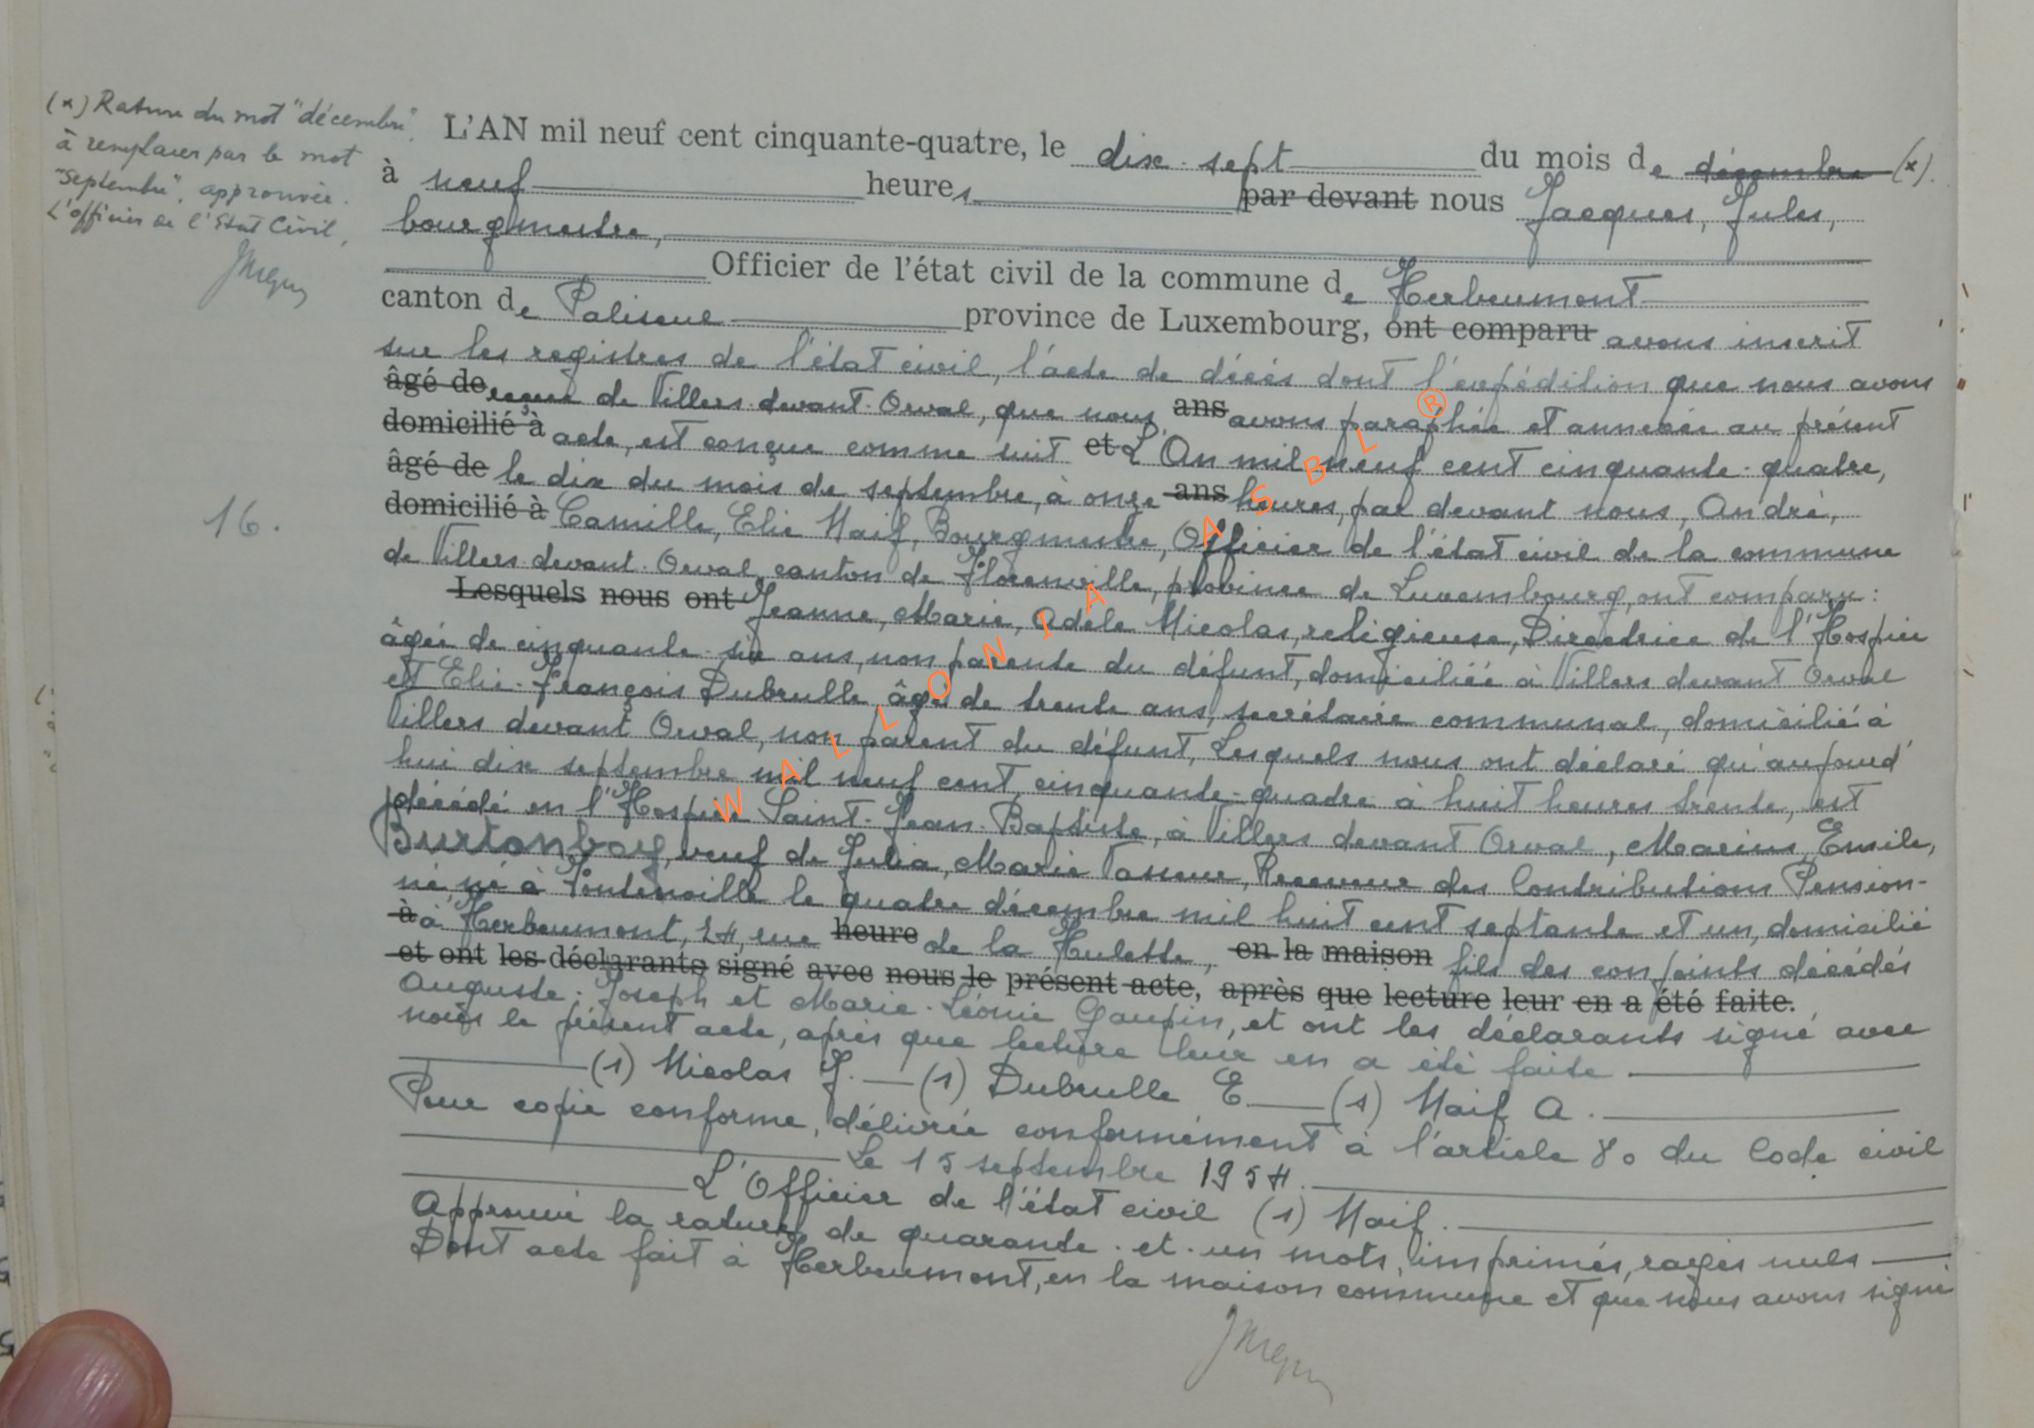 (x) Rature du mot "décembre",
à remplacer par le mot
"septembre", approuvée.
L'officier de l'Etat Civil,
16.
L'AN mil neuf cent cinquante-quatre, le dix-sept du mois de décembre (x).
à neuf heures par devant nous Jacques, Jules,
bourgmestre,
Officier de l'état civil de la commune de Herbeumont
canton de Paliseul province de Luxembourg, ont comparu avons inscrit
sur les registres de l'état civil, l'acte de décès dont l'expédition que nous avons
âgé de reçue de Villers-devant-Orval, que nous ans avons paraphée et annexée au présent
domicilié à acte, est conçue comme suit et L'An mil neuf cent cinquante-quatre,
âgé de le dix du mois de septembre, à onze ans heures, par devant nous, André,
domicilié à Camille, Elie Naif, Bourgmestre, Officier de l'état civil de la commune
de Villers-devant-Orval, canton de Florenville, province de Luxembourg, ont comparu:
Lesquels nous ont Jeanne, Marie, Adèle Nicolas, religieuse, Directrice de l'Hospice
âgée de cinquante-six ans, non parente du défunt, domiciliée à Villers devant Orval
et Elie-François Dubrulle, âgé de trente ans, secrétaire communal, domicilié à
Villers devant Orval, non parent du défunt, Lesquels nous ont déclaré qu'aujourd'
hui dix septembre mil neuf cent, cinquante-quatre à huit heures trente, est
décédé en l'Hospice Saint-Jean-Baptiste, à Villers devant Orval, Marius, Emile,
Burtonboy, veuf de Julia, Marie Tasseur, Receveur des Contributions Pension-
né, né à Fontenoille le quatre décembre mil huit cent septante et un, domicilié
à à Herbeumont, 24, rue heure de la Hulette, en la maison fils des conjoints décédés
et ont les déclarants signé avec nous le présent acte, après que lecture leur en a été faite.
Auguste-Joseph et Marie-Léonie Gaupin, et ont les déclarants signé avec
nous le présent acte, après que lecture leur en a été faite
(1) Nicolas J. (1) Dubrulle E (1) Naif A.
Pour copie conforme, délivrée conformément à l'article 80 du Code civil
Le 15 septembre 1954.
L'Officier de l'état civil (1) Naif.
Approuvé la rature de quarante-et-un mots, imprimés, rayés nuls
Dont acte fait à Herbeumont, en la maison commune et que nous avons signé
WALLONIA ASBL ®